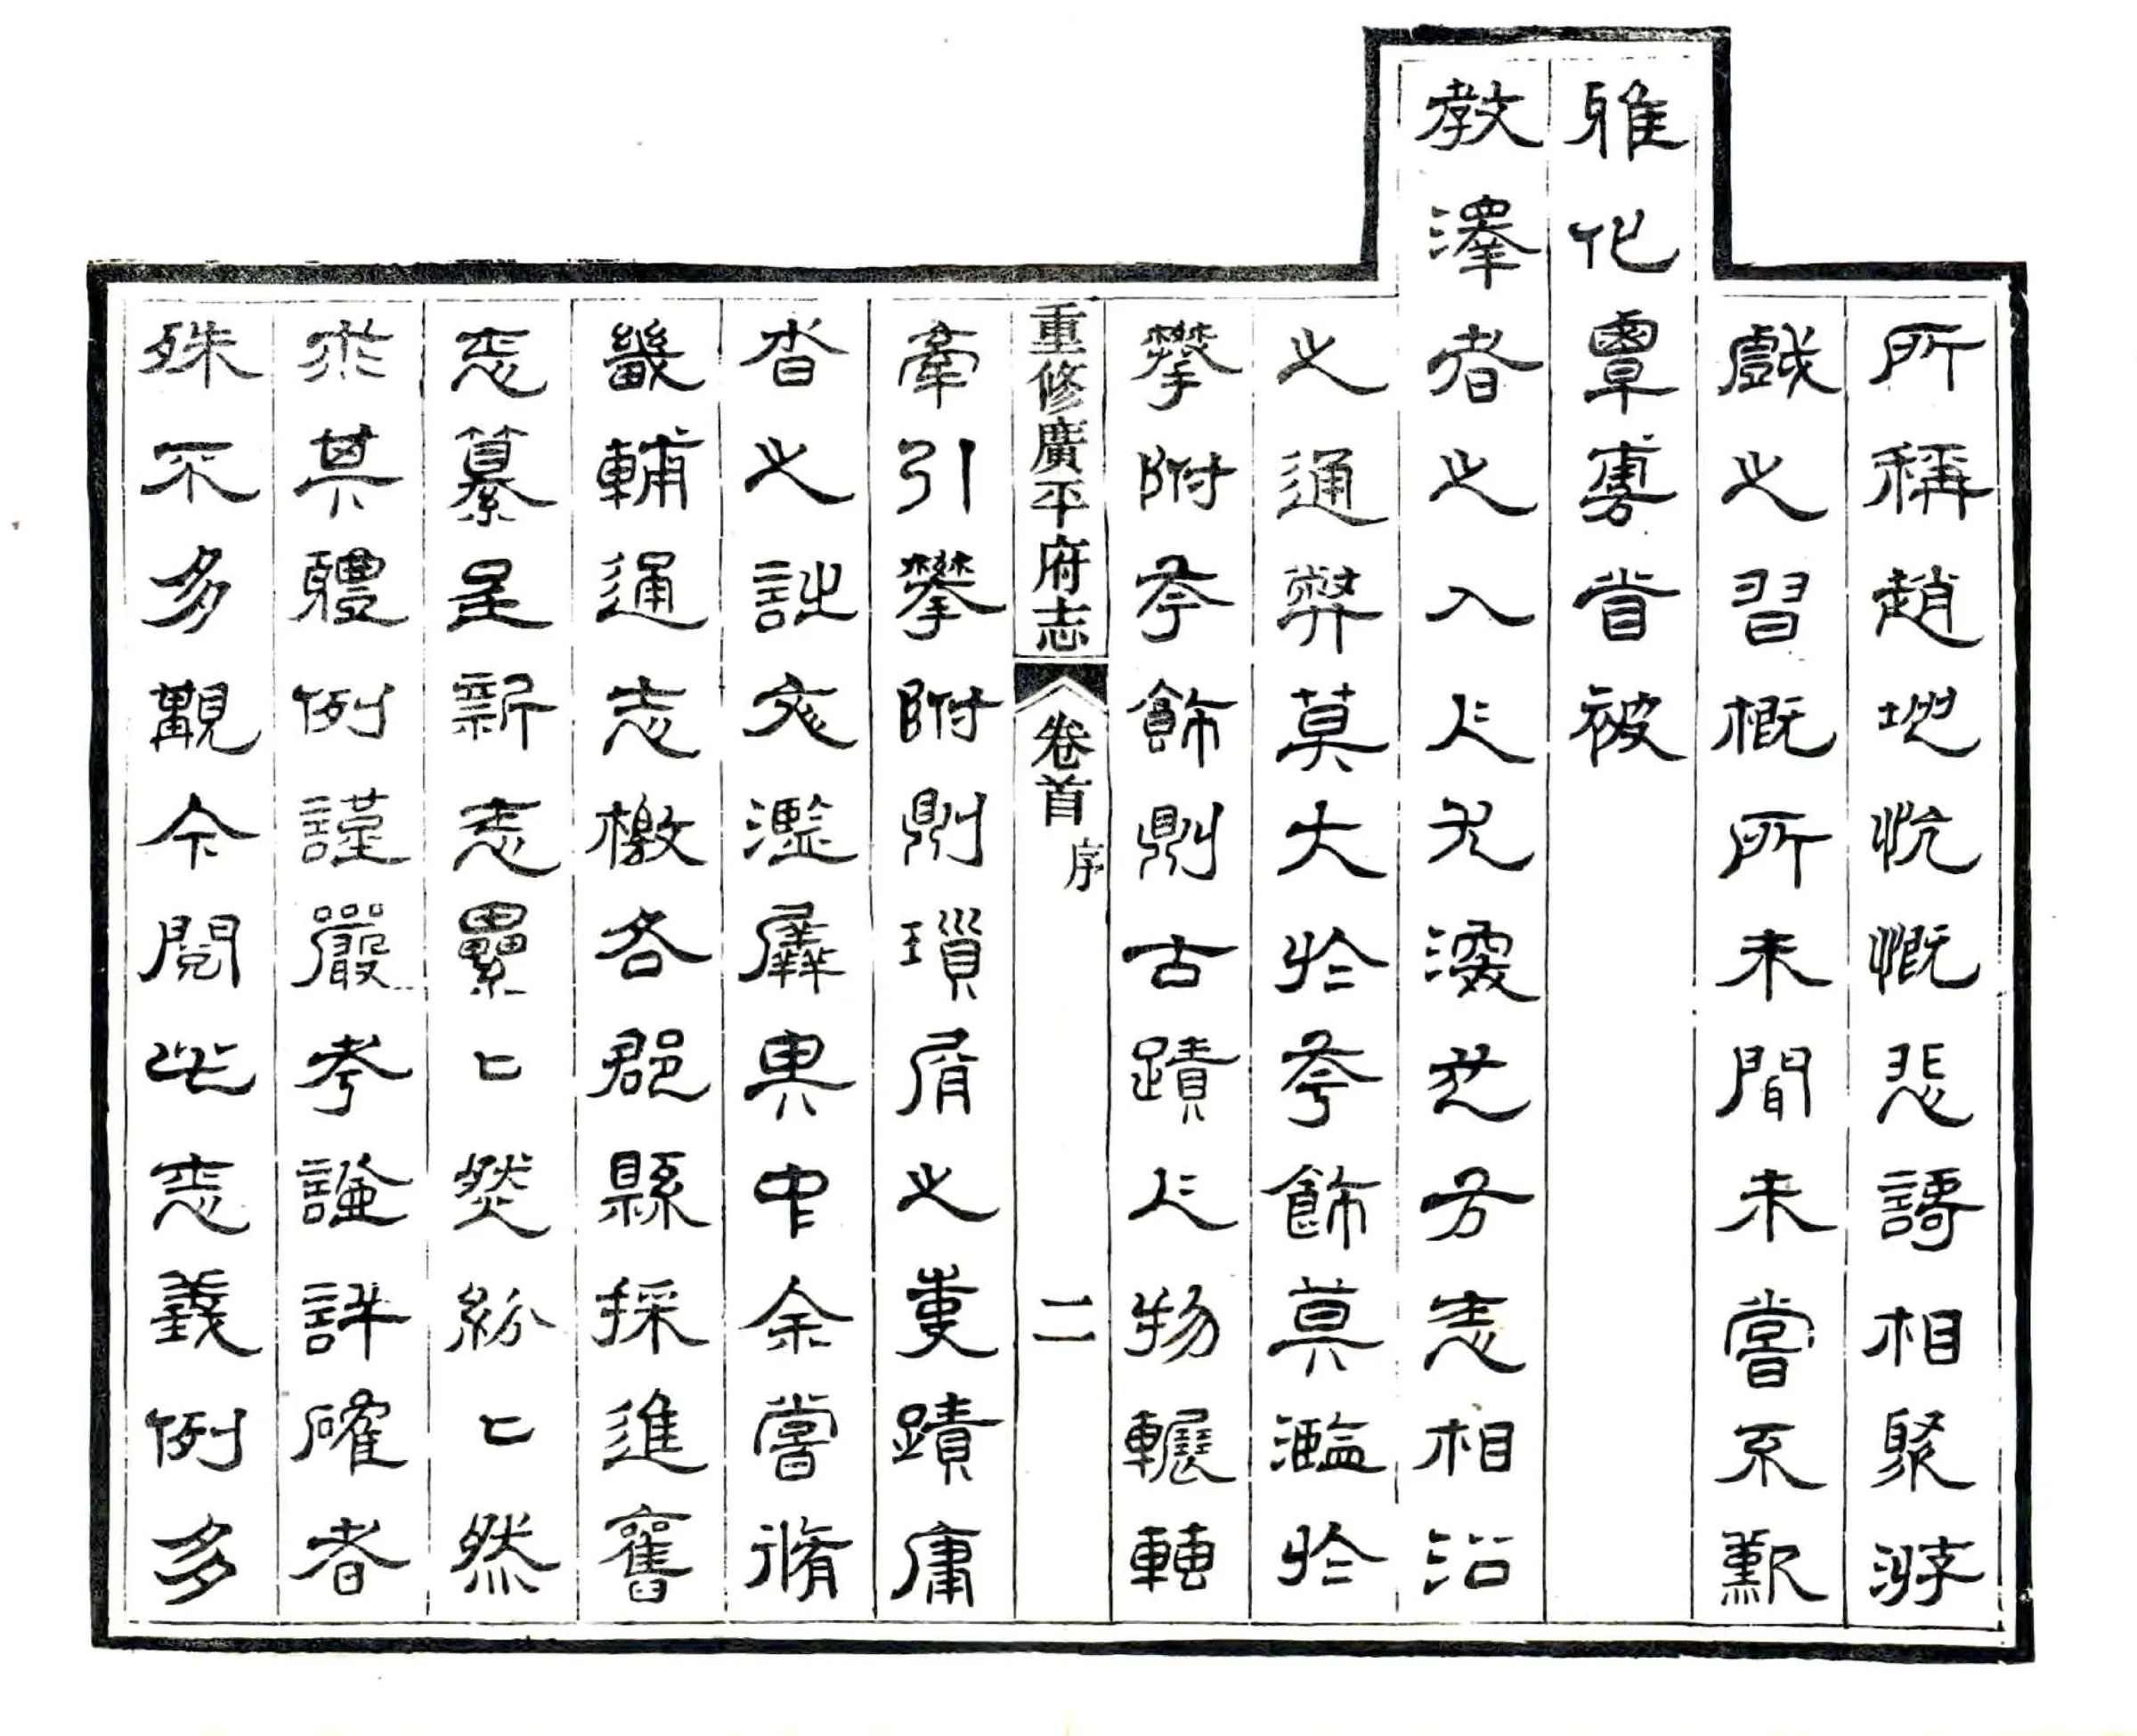 所稱趙地忼慨悲謌相聚游
戲之習概所未聞未嘗不歎
雅化覃敷首被
教澤者之入人尤深也方志相沿
之通弊莫大於夸飾莫濫於
攀附夸飾則古蹟人物輾轉
重修廣平府志 卷首 序 二
牽引攀附則瑣屑之事蹟庸
沓之詩文濫羼其中余嘗脩
畿輔通志檄各郡縣採進舊
志纂呈新志纍匕然紛匕然
求其體例謹嚴考證詳確者
殊不多覯今閱此志義例多